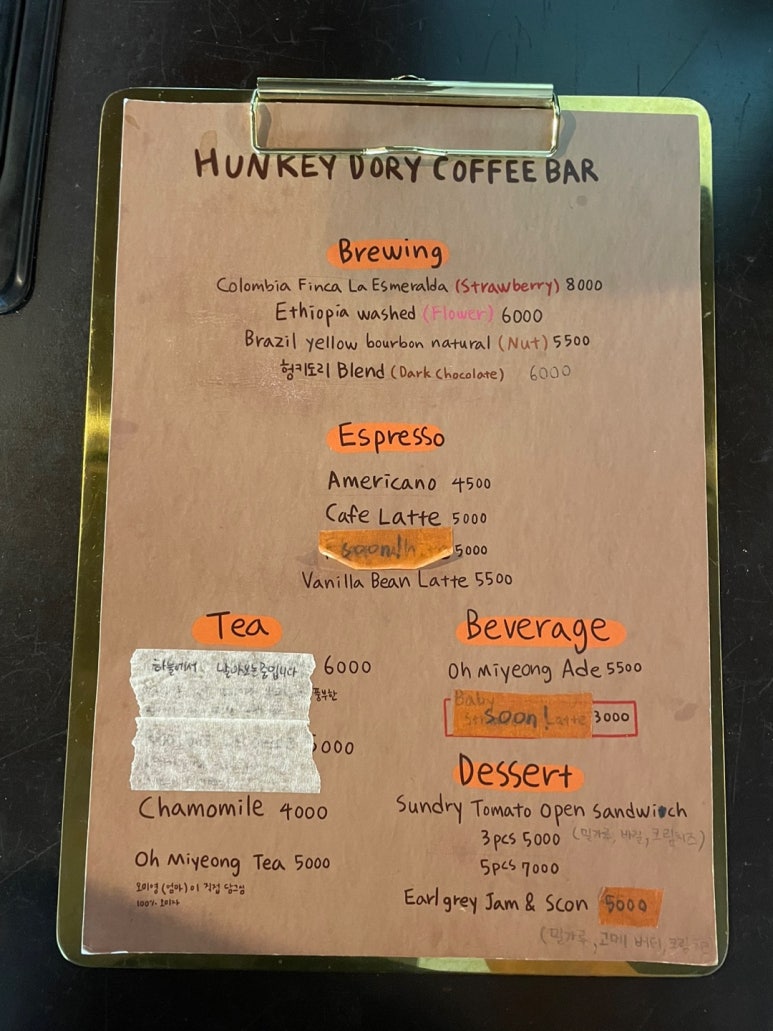 HUNKEY DORY COFFEE BAR
Brewing
Colombia Finca La Esmeralda (Strawberry) 8000
Ethiopia washed (Flower) 6000
Brazil yellow bourbon natural (Nut) 5500
헝키도리 Blend (Dark Chocolate) 6000
Espresso
Americano 4500
Cafe Latte 5000
soon! 5000
Vanilla Bean Latte 5500
Tea
하늘에서 날아보는중입니다 6000
풍부한
5000
Chamomile 4000
Oh Miyeong Tea 5000
오미영(엄마)이 직접 담그심
100% 오미자
Beverage
Oh Miyeong Ade 5500
Baby
soon! Latte 3000
Dessert
Sundry Tomato Open Sandwich
3pcs 5000 (밀가루, 바질, 크림치즈)
5pcs 7000
Earlgrey Jam & Scon 5000
(밀가루, 고메 버터, 크림